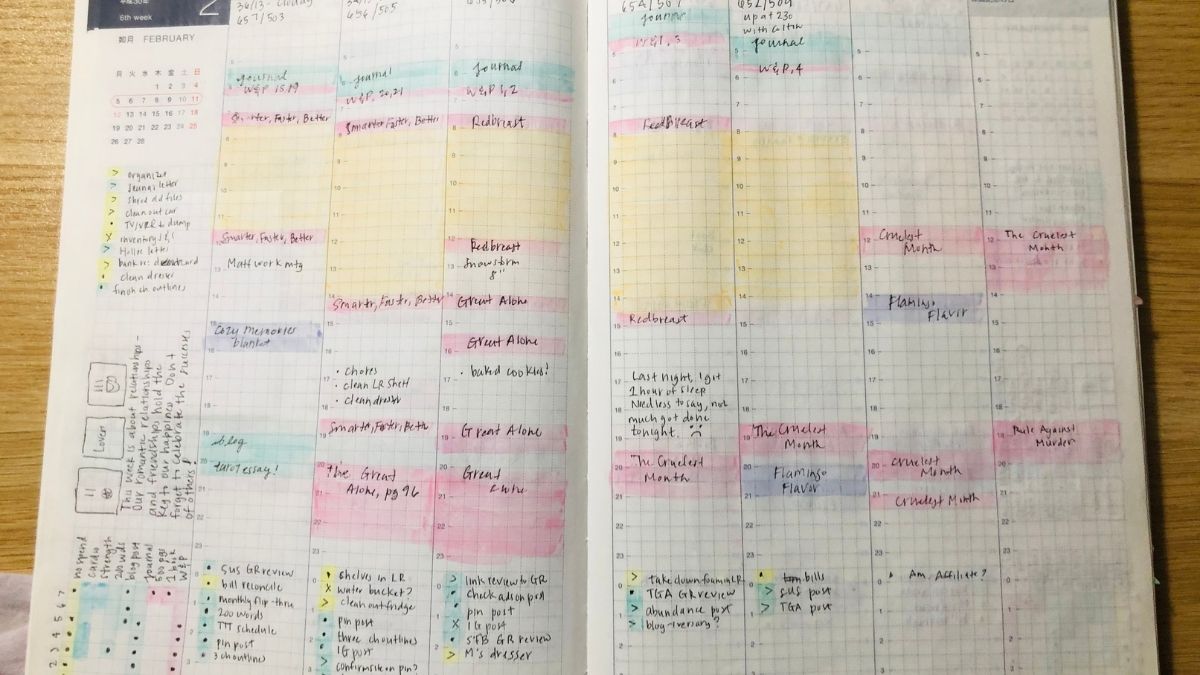 平成30年
6th week
2
如月 FEBRUARY
月 火 水 木 金 土 日
1 2 3 4
5 6 7 8 9 10 11
12 13 14 15 16 17 18
19 20 21 22 23 24 25
26 27 28
organize
shred old files
clean out car
TV/VCR to dump
Hollie letter
clean dresser
finish ch outlines
Lovers
This week is about relationships –
our romantic relationships
and friendships hold the
key to our happiness. Don't
forget to celebrate the successes
of others!
no spend
cardio
strength
200 wds
blog post
journal
500 pgs
1 book
W&P
1 2 3 4 5 6 7
657/503
journal
W&P 18,19
Smarter, Faster, Better
Smarter, Faster, Better
Matt work mtg
Cozy Memories
blanket
blog
tarot essay!
SUS GR review
bill reconcile
monthly flip-thru
200 words
TTT schedule
pin post
3 ch outlines
656/505
journal
W&P, 20,21
Smarter, Faster, Better
Smarter, Faster, Better
• chores
• clean LR shelf
• clean dresser
Smarter, Faster, Better
The Great
Alone, pg 96
shelves in LR
water bucket?
clean out fridge
pin post
three ch outlines
IG post
confirmation pin?
journal
W&P 1, 2
Redbreast
Redbreast
Snowstorm
8"
Great Alone
Great Alone
• baked cookies!
Great Alone
Great
link review to GR
check ads on post
pin post
IG post
SFB GR review
M's dresser
654/507
journal
Redbreast
Redbreast
Last night, I got
2 hour of sleep
Needless to say, not
much got done
tonight. ☹
The Cruelest
Month
TGA GR review
abundance post
blog-iversary?
652/509
up at 230
with Colton
journal
W&P, 4
The Cruelest
Month
Flamingo
Flavor
bills
SUS post
TGA post
Cruelest
Month
Flamingo
Flavor
Cruelest
Month
Cruelest Month
Am. Affiliate?
The Cruelest
Month
Rule Against
Murder